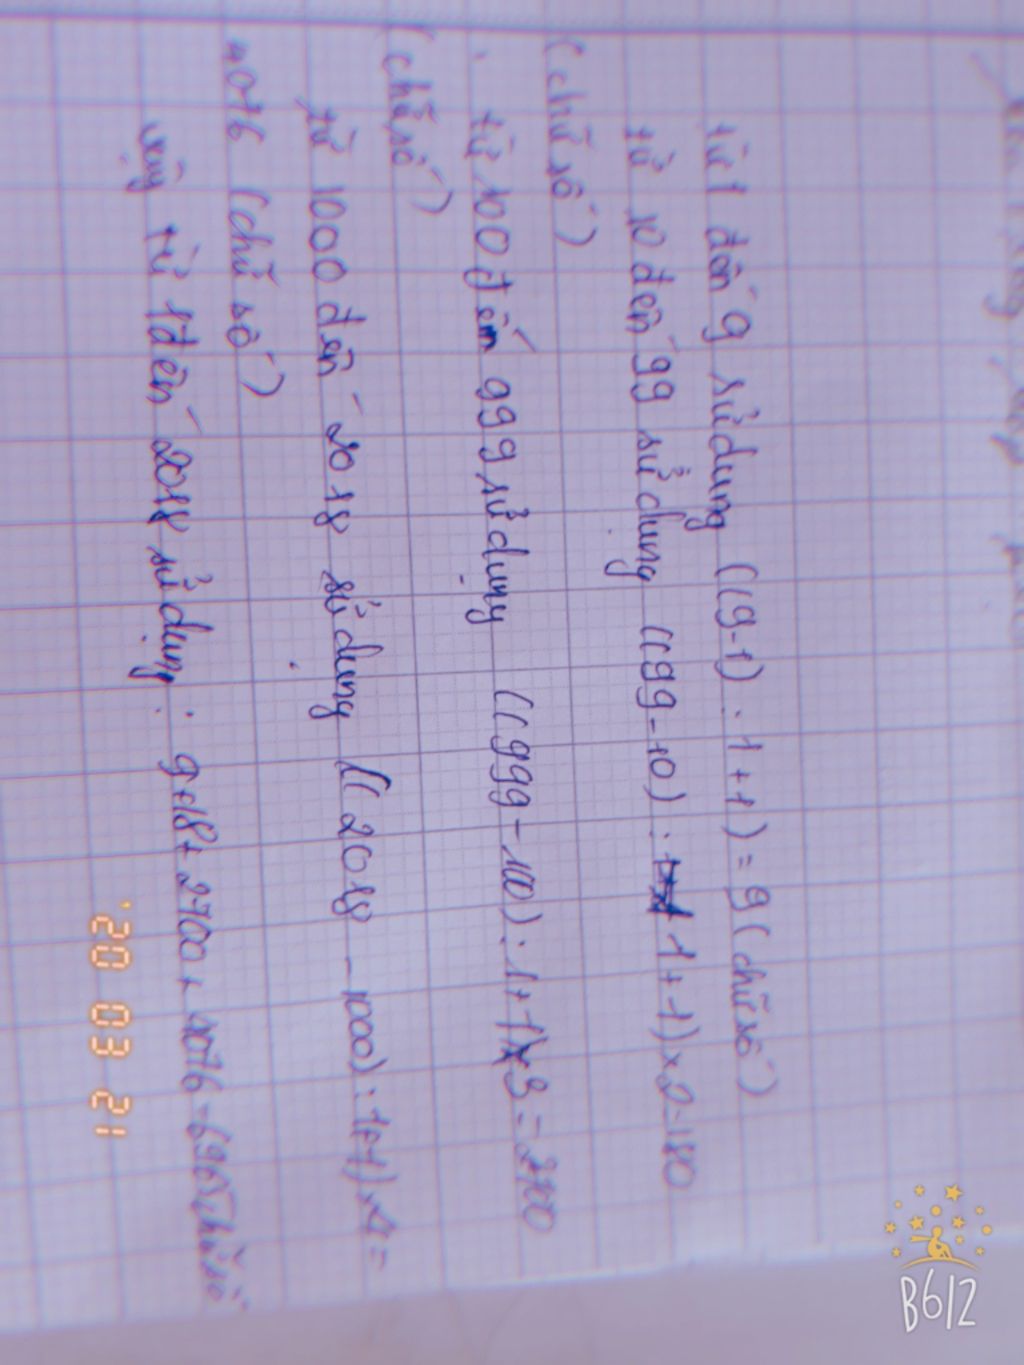 từ 1 đến 9 sử dung ((9-1) : 1+1) = 9 (chữ số)
từ 10 đến 99 sử dụng ((99-10) : 1+1) x 2 = 180
(chữ số)
từ 100 đến 999 sử dụng ((999-100) : 1+1) x 3 = 2700
(chữ số)
từ 1000 đến 2018 sử dụng ((2018 - 1000) : 1+1) x 4 =
4076 (chữ số)
vậy từ 1 đến 2018 sử dụng : 9+18+ 2700 + 4076 = 6965 chữ số
'20 03 21
B612